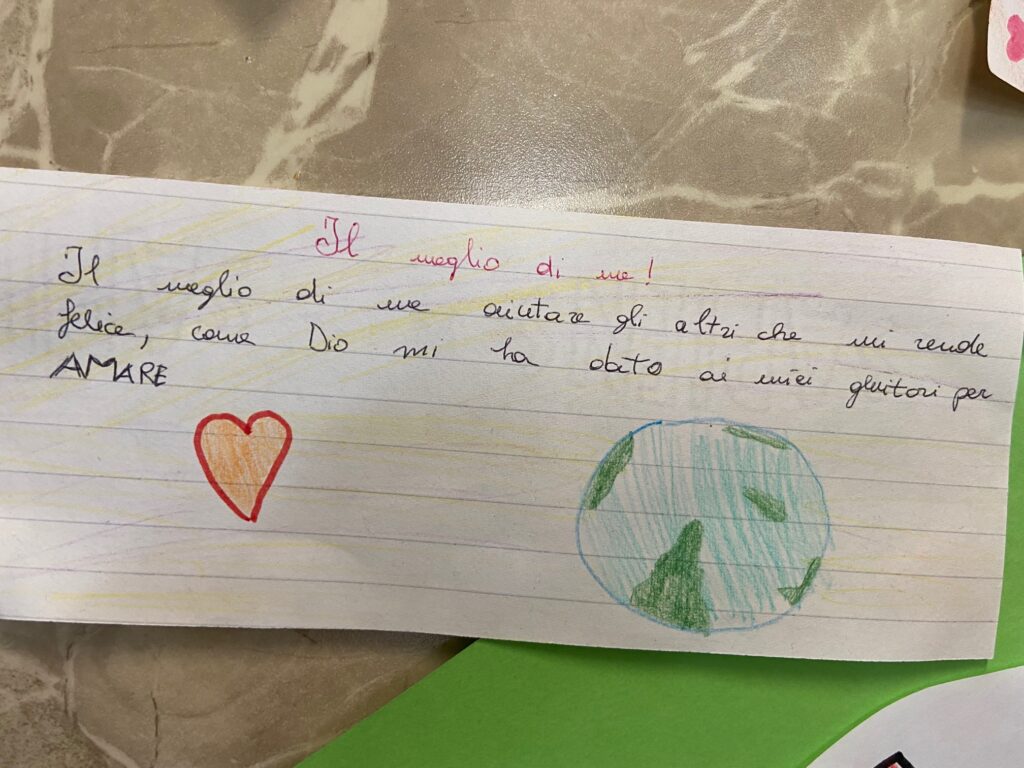 Il meglio di me!
Il meglio di me aiutare gli altri che mi rende
felice, come Dio mi ha dato ai miei genitori per
AMARE